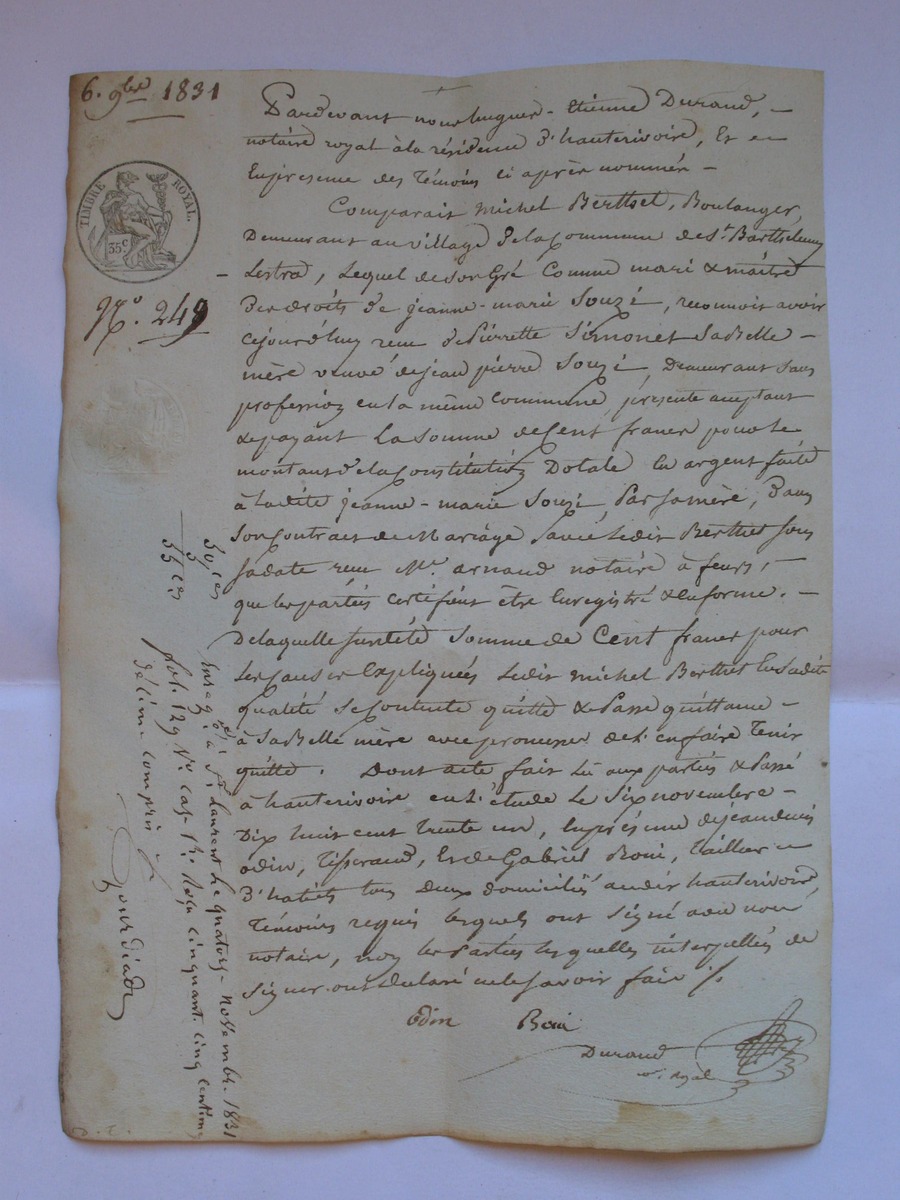 6. 9bre 1831
TIMBRE ROYAL.
35 c
N.o 249
Pardevant nous hugues-Etienne Durand, -
notaire royal à la résidence d'hauterivoire, Et en
Enpresence des Témoins ci après nommés -
Comparait Michel Berthet, Boulanger,
Demeurant au village de la Commune de St. Barthelemy
Lestra, Lequel de son Gré Comme mari & maître
Des droits de jeanne-marie Souzé, reconnoit avoir
cejourd'huy reçu de Pierrette Simonet sa Belle-
mère veuve de jean pierre Souzé, Demeurant sans
profession en la même Commune, présente acceptant
& payant La Somme de Cent francs pour le
montant de la Constitution Dotale En argent faite
à ladite jeanne-marie Souzé, Par sa mère, Dans
Son Contrat de Mariage avec Ledit Berthet sous
Sa date reçu Me. arnaud notaire à feurs, -
que les parties Certifient être Enregistré & En forme. -
De laquelle susdite Somme de Cent francs pour
Les causes Expliquées Ledit Michel Berthet En Sadite
qualité Se Contente quitte & Passe quittance -
à Sa Belle mère avec promesse de L'en faire Tenir
quitte. Dont acte fait Lû aux parties & Passé
à hauterivoire en L'étude Le Six novembre -
Dix huit cent trente un, En présence de jean
odin, Tisserand, Et de Gabriel Roui, Tailleur -
D'habits tous Deux domiciliés audit hauterivoire,
Témoins requis lesquels ont Signé avec nous
notaire, non les Parties lesquelles interpellées de
Signer ont Déclaré ne le Savoir faire ./.
odin Roui
Durand
re. Royal
50 ces
5
55 ces
Enreg.tré à St. Laurent le quatorze Novembre 1831
fol. 129 Vo. cas 1 re. Reçu cinquante cinq centimes
décime compris